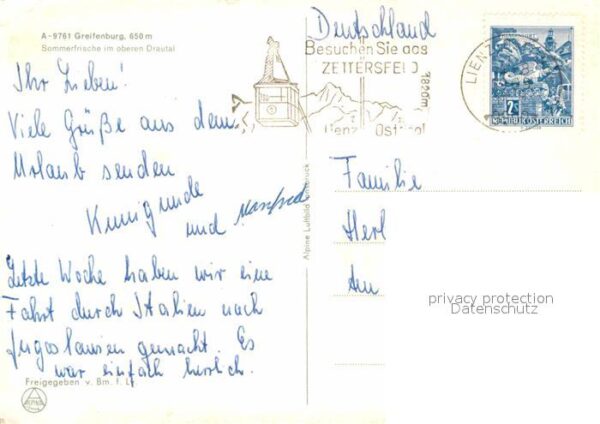 A-9761 Greifenburg, 650 m
Sommerfrische im oberen Drautal
Ihr Lieben!
Viele Grüße aus dem
Urlaub senden
Kunigunde
und Manfred
Letzte Woche haben wir eine
Fahrt durch Italien nach
Jugoslawien gemacht. Es
war einfach herrlich.
Freigegeben v. Bm. f. Lv.
Alpine Luftbild Innsbruck
Deutschland
Besuchen Sie das
ZETTERSFELD
1820m
Lienz Osttirol
LIENZ
2S
REPUBLIK ÖSTERREICH
Familie
Herl
Am
privacy protection
Datenschutz